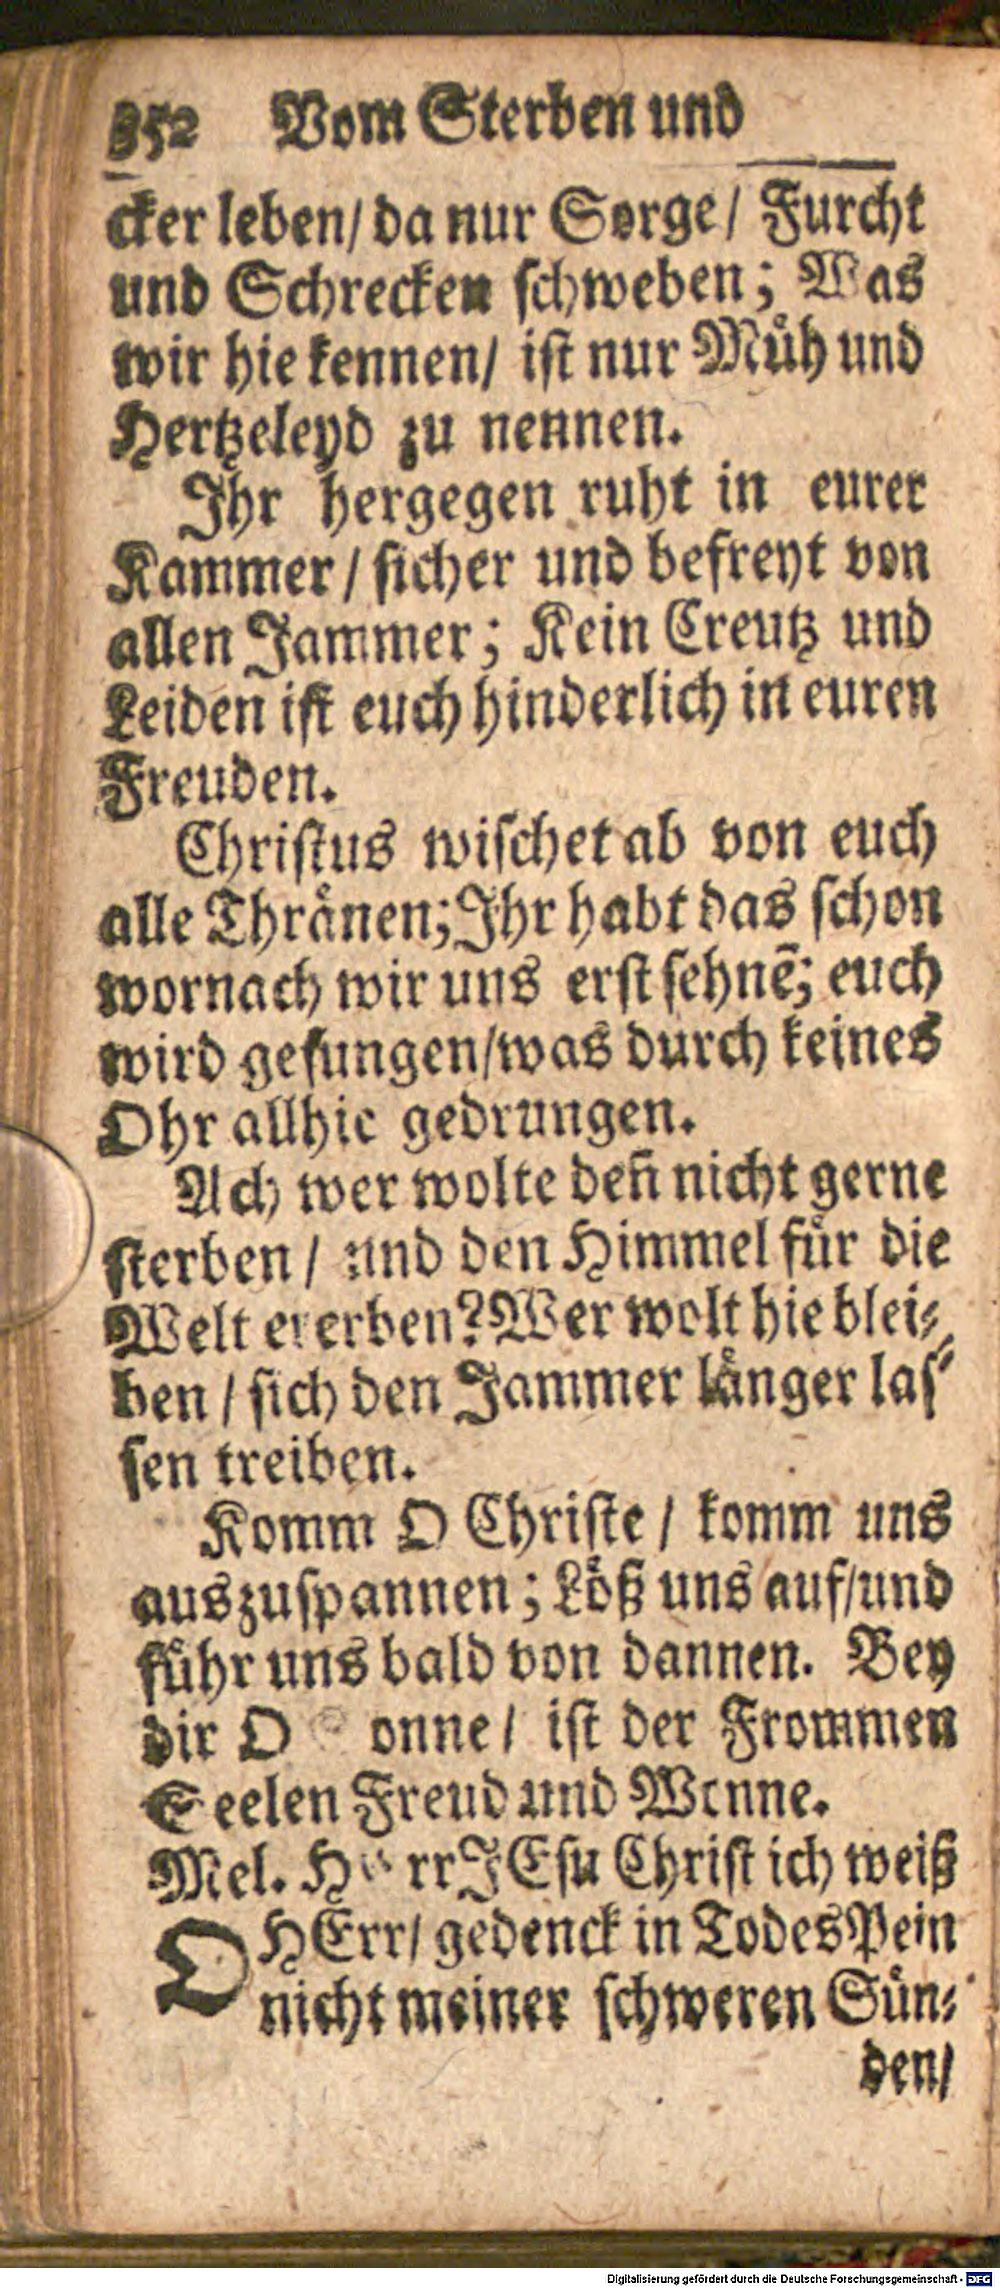 852 Vom Sterben und
cker leben/ da nur Sorge/ Furcht
und Schrecken schweben; Was
wir hie kennen/ ist nur Mühund
Hertzeleyd zu nennen.
Ihr hergegen ruht in eurer
Kammer/ sicher und befreyt von
allen Jammer; Kein Creutz und
Leiden ist euch hinderlich in euren
Freuden.
Christus wischet ab von euch
alle Thränen; Ihr habt das schon
wornach wir uns erst sehnē; euch
wird gesungen/was durch keines
Ohr allhie gedrungen.
Ach wer wolte deñ nicht gerne
sterben/ und den Himmel für die
Welt ererben? Wer wolt hie blei-
ben/ sich den Jammer länger las-
sen treiben.
Komm O Christe/ komm uns
auszuspannen; Löß uns auf/und
führ uns bald von dannen. Bey
dir O onne/ ist der Frommen
Seelen Freud und Wonne.
Mel. Herr JEsu Christ ich weiß
O HErr/ gedenck in Todes Pein
nicht meiner schweren Sün-
den/
Digitalisierung gefördert durch die Deutsche Forschungsgemeinschaft - DFG